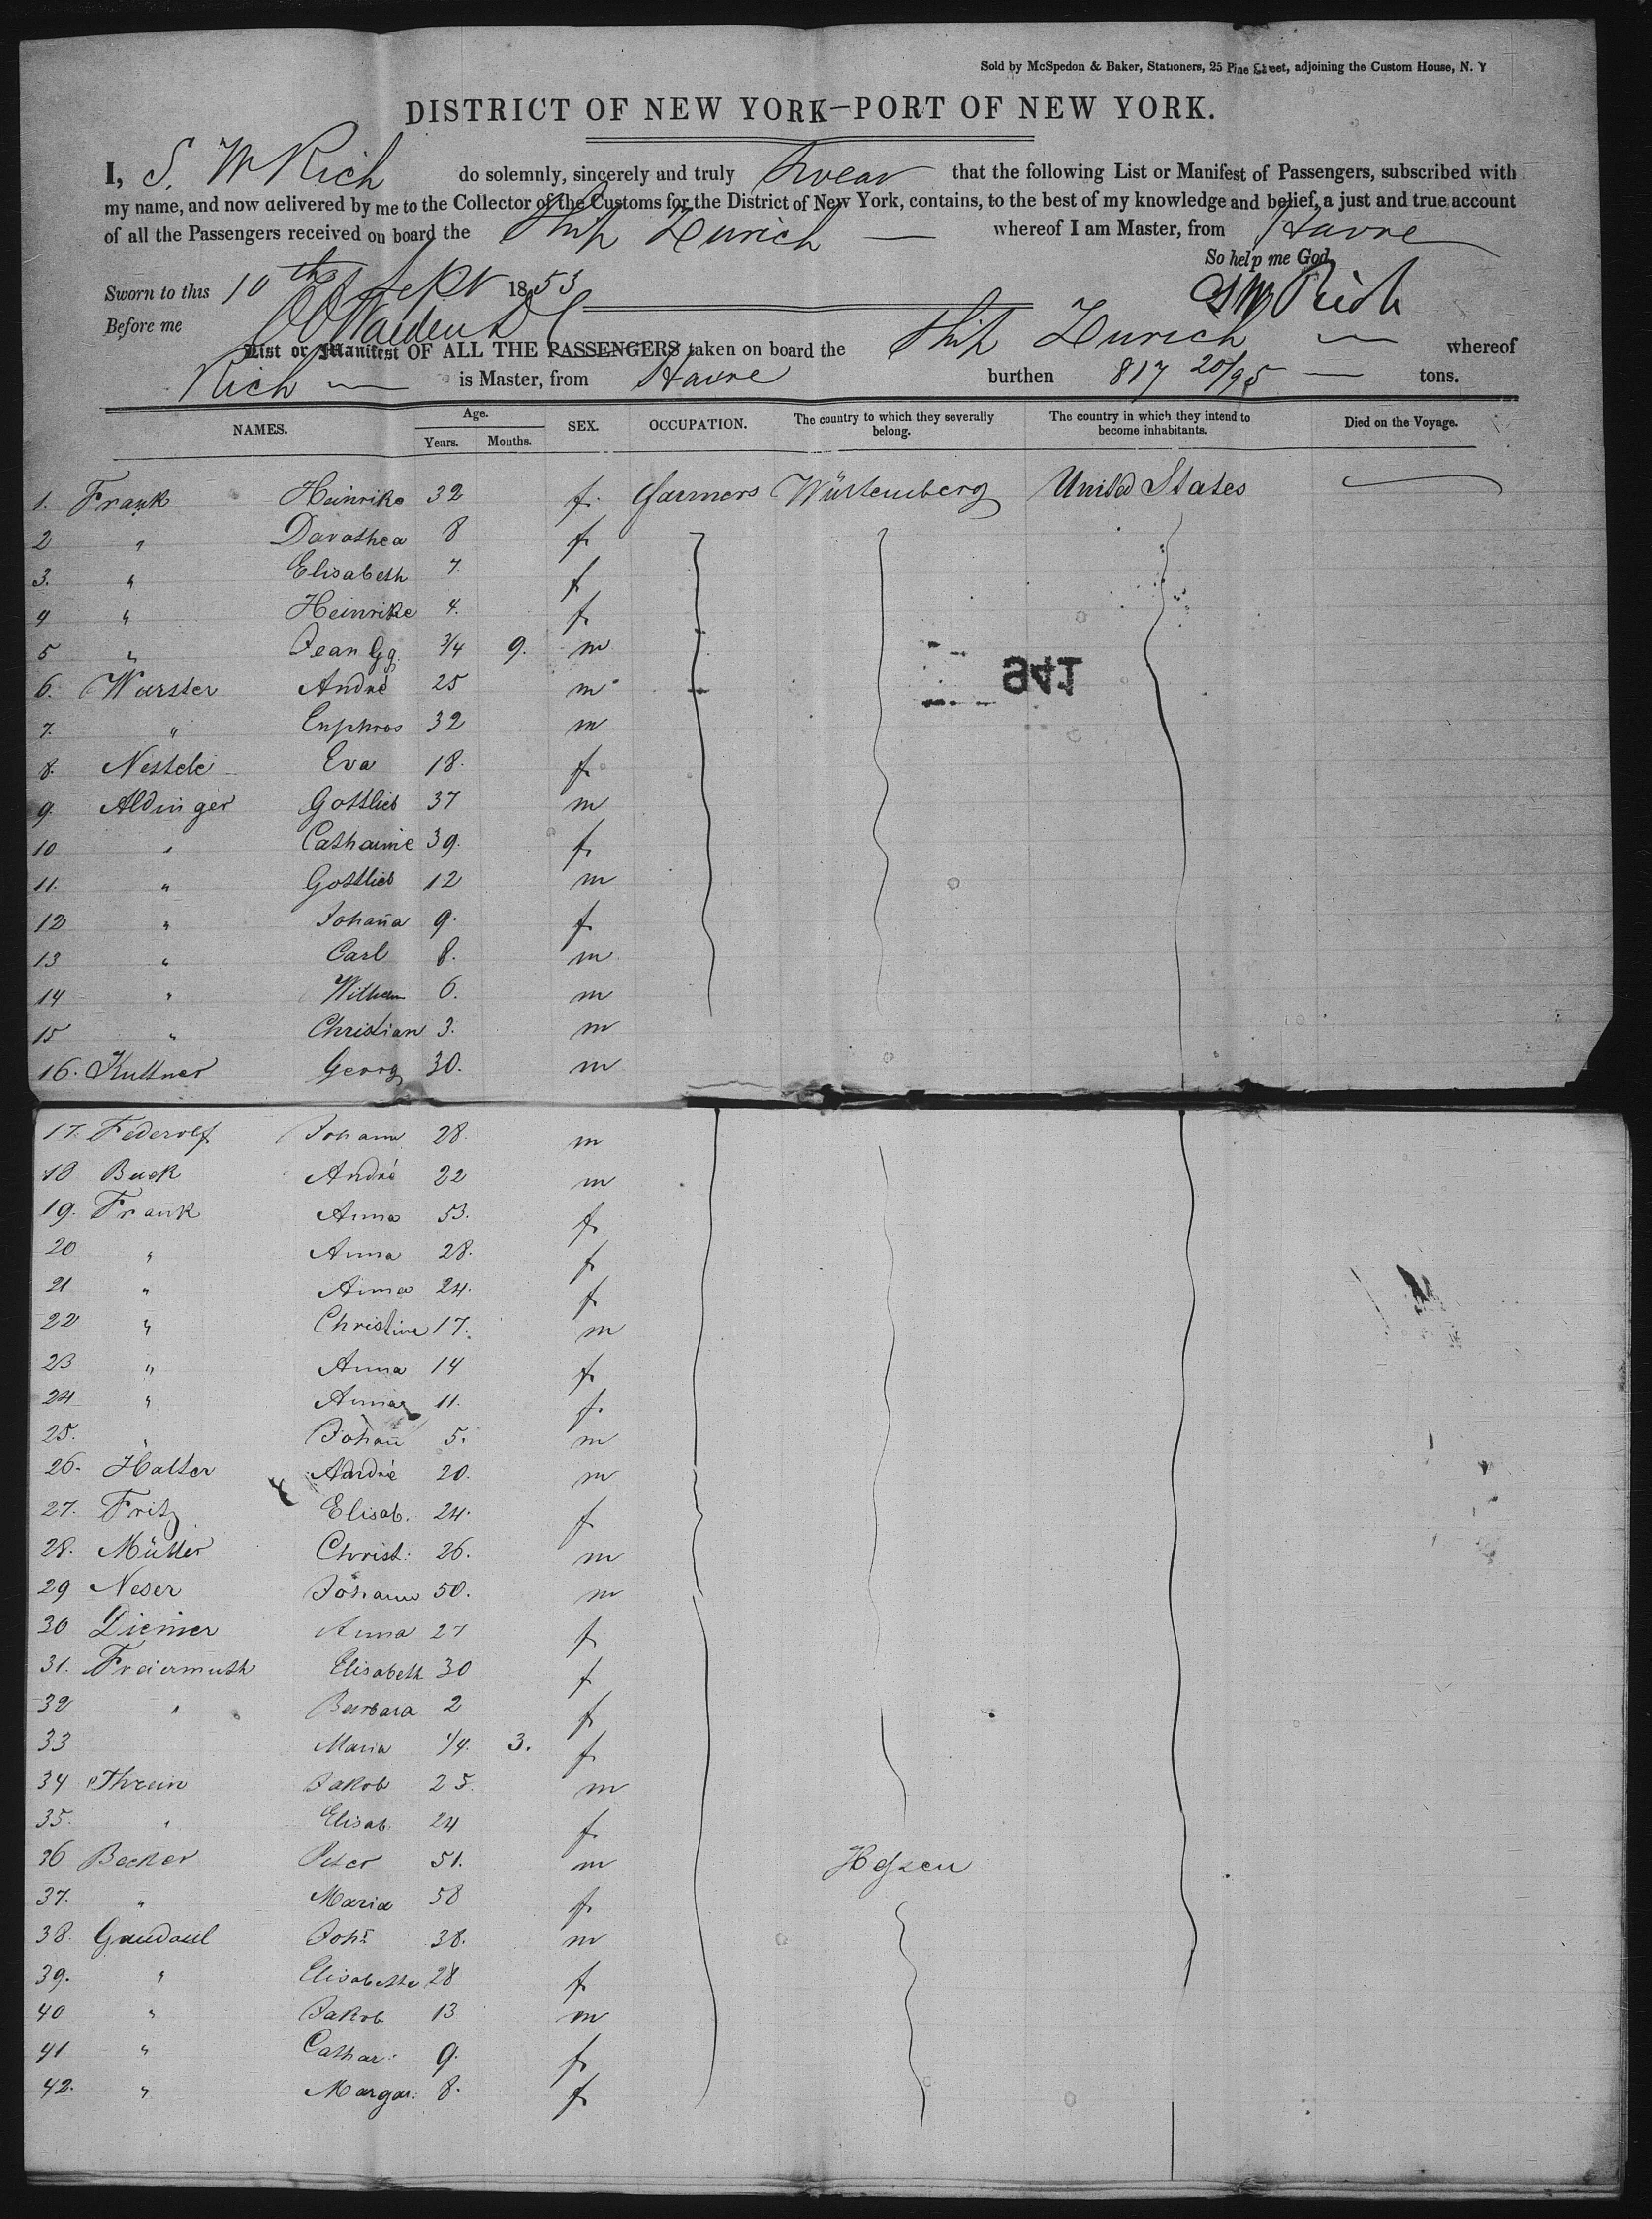 Sold by McSpedon & Baker, Stationers, 25 Pine Street, adjoining the Custom House, N. Y
DISTRICT OF NEW YORK—PORT OF NEW YORK.
I, S. W Rich do solemnly, sincerely and truly Swear that the following List or Manifest of Passengers, subscribed with
my name, and now delivered by me to the Collector of the Customs for the District of New York, contains, to the best of my knowledge and belief, a just and true account
of all the Passengers received on board the Ship Zurich — whereof I am Master, from Havre
So help me God
Sworn to this 10th Sept 1853 S W Rich
Before me
List or Manifest OF ALL THE PASSENGERS taken on board the Ship Zurich — whereof
Rich — is Master, from Havre burthen 817 20/95 — tons.
NAMES. Age. Years. Months. SEX. OCCUPATION. The country to which they severally belong. The country in which they intend to become inhabitants. Died on the Voyage.
1. Frank Heinrike 32 f. farmers Würtemberg United States
2 " Darothea 8 f
3. " Elisabeth 7. f
4 " Heinrike 4. f
5 " Jean Gg. 3/4 9. m
941
6. Wurster André 25 m
7. " Euphros 32 m
8. Nestele Eva 18. f
9. Aldinger Gottlieb 37 m
10 " Catharine 39. f
11. " Gottlieb 12 m
12 " Johaña 9. f
13 " Carl 8. m
14 " Wilhelm 6. m
15 " Christian 3. m
16. Kuttner Georg 30. m
17. Federolf Johann 28. m
18 Buck André 22 m
19. Frank Anna 53. f
20 " Anna 28. f
21 " Anna 24. f
22 " Christine 17. m
23 " Anna 14 f
24 " Anna 11. f.
25. " Johañ 5. m
26. Halter André 20. m
27. Fritz Elisab. 24. f
28. Müller Christ: 26. m
29 Neser Johann 50. m
30 Diemer Anna 27 f
31. Freiermuth Elisabeth 30 f
32 " Barbara 2 f
33 Maria 1/4. 3. f
34 Threin Jakob 25. m
35. " Elisab. 24 f
36 Becker Peter 51. m Hessen
37. " Maria 58 f
38. Gaudaul Joh: 38. m
39. " Elisabethe 28 f
40 " Jakob 13 m
41 " Cathar: 9. f
42. " Margar: 8. f